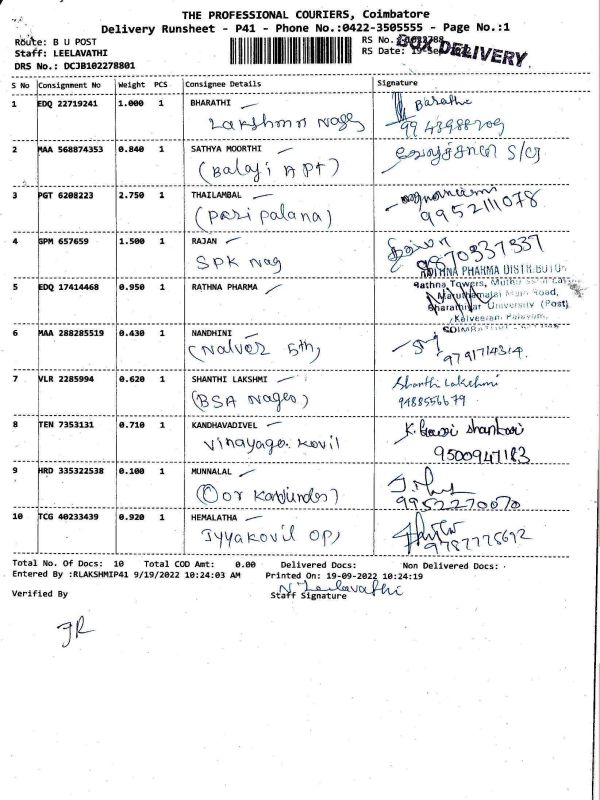 THE PROFESSIONAL COURIERS, Coimbatore
Delivery Runsheet - P41 - Phone No.:0422-3505555 - Page No.:1
Route: B U POST
RS No.
BOX DELIVERY
Staff: LEELAVATHI
RS Date: 19-Sep-2022
DRS No.: DCJB102278801
S No Consignment No Weight PCS Consignee Details Signature
1 EDQ 22719241 1.000 1 BHARATHI
Barathi
Lakshmi Nagar
9943988209
2 MAA 568874353 0.840 1 SATHYA MOORTHI
(Balaji APT)
3 PGT 6208223 2.750 1 THAILAMBAL
(Pari palana)
9952111078
4 GPM 657659 1.500 1 RAJAN
SPK Nag
9870337337
5 EDQ 17414468 0.950 1 RATHNA PHARMA
RATHNA PHARMA DISTRIBUTOR
Rathna Towers,
Maruthamalai Main Road,
Bharathiar University (Post)
Kalveeram Palayam,
6 MAA 288285519 0.430 1 NANDHINI
(Nalvar 5th)
9791714314
7 VLR 2285994 0.620 1 SHANTHI LAKSHMI
Shanthi Lakshmi
(BSA Nagar)
9488556679
8 TEN 7353131 0.710 1 KANDHAVADIVEL
Vinayaga kovil
9500947183
9 HRD 335322538 0.100 1 MUNNALAL
9952270070
10 TCG 40233439 0.920 1 HEMALATHA
Iyyakovil OP)
9787778692
Total No. Of Docs: 10 Total COD Amt: 0.00 Delivered Docs: Non Delivered Docs:
Entered By :RLAKSHMIP41 9/19/2022 10:24:03 AM Printed On: 19-09-2022 10:24:19
N. Leelavathi
Verified By Staff Signature